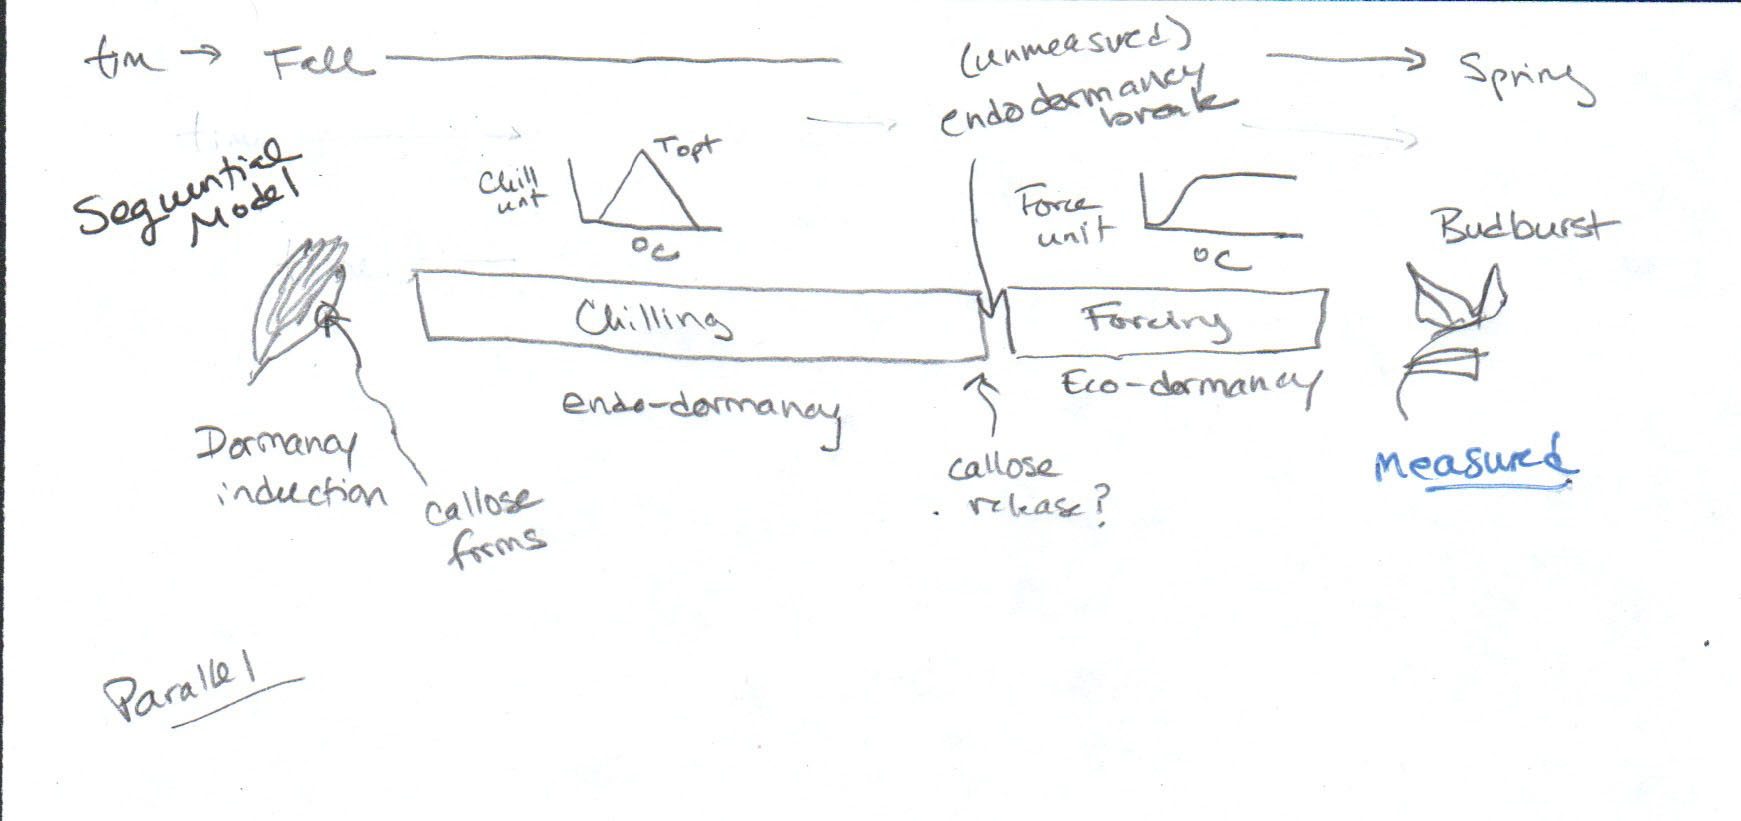 tim → Fall
(unmeasured)
endodormancy
break
Spring
time
Sequential
Model
Chill
unt
Topt
°C
Force
unit
°C
Budburst
Chilling
Forcing
endo-dormancy
Eco-dormancy
Dormancy
induction
callose
forms
callose
release?
measured
Parallel